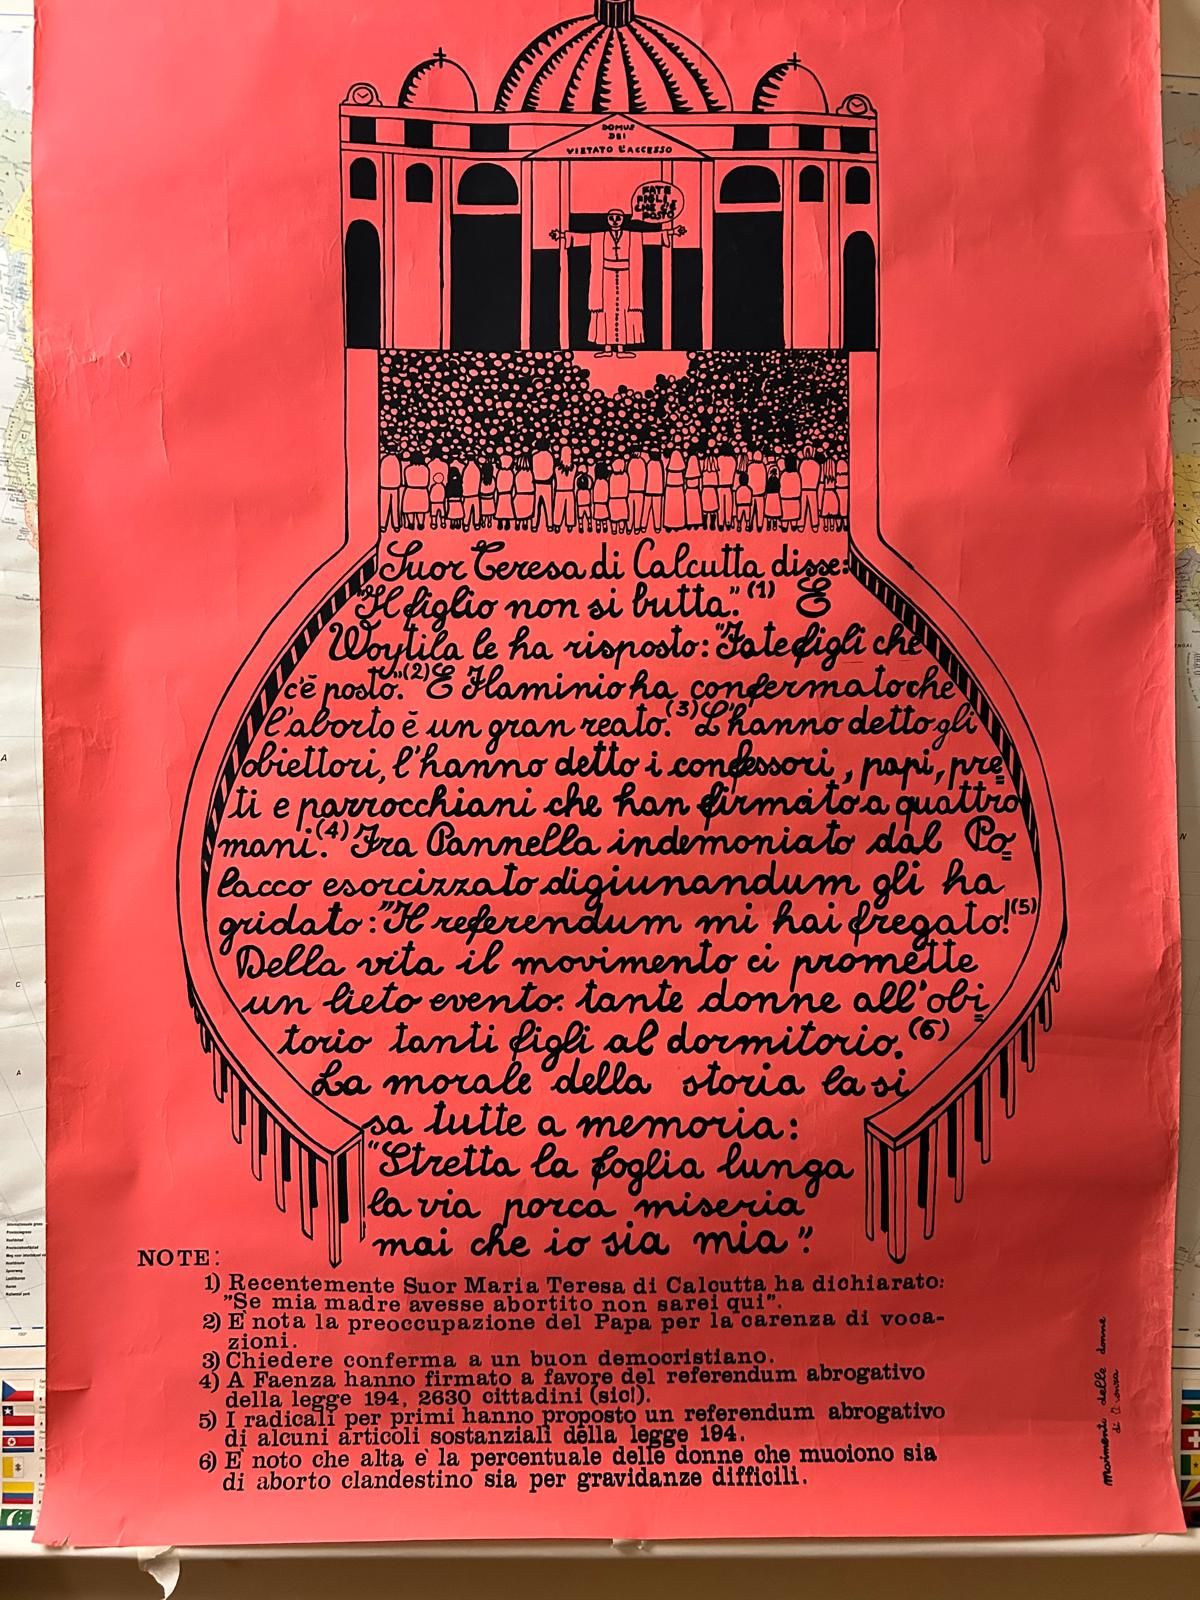 DOMUS
DEI
VIETATO L'ACCESSO
FATE
FIGLI
CHE C'È
POSTO
Suor Teresa di Calcutta disse:
"Il figlio non si butta."(1) E
Woytila le ha risposto: "Fate figli che
c'è posto."(2) E Flaminio ha confermato che
l'aborto è un gran reato.(3) L'hanno detto gli
obiettori, l'hanno detto i confessori, papi, pre=
ti e parrocchiani che han firmato a quattro
mani.(4) Fra Pannella indemoniato dal Po=
lacco esorcizzato digiunandum gli ha
gridato: "Il referendum mi hai fregato!(5)
Della vita il movimento ci promette
un lieto evento: tante donne all'obi=
torio tanti figli al dormitorio.(6)
La morale della storia la si
sa tutte a memoria:
"Stretta la foglia lunga
la via porca miseria
mai che io sia mia".
NOTE:
1) Recentemente Suor Maria Teresa di Calcutta ha dichiarato:
"Se mia madre avesse abortito non sarei qui".
2) E' nota la preoccupazione del Papa per la carenza di voca-
zioni.
3) Chiedere conferma a un buon democristiano.
4) A Faenza hanno firmato a favore del referendum abrogativo
della legge 194, 2630 cittadini (sic!).
5) I radicali per primi hanno proposto un referendum abrogativo
di alcuni articoli sostanziali della legge 194.
6) E' noto che alta e' la percentuale delle donne che muoiono sia
di aborto clandestino sia per gravidanze difficili.
Movimento delle donne
di